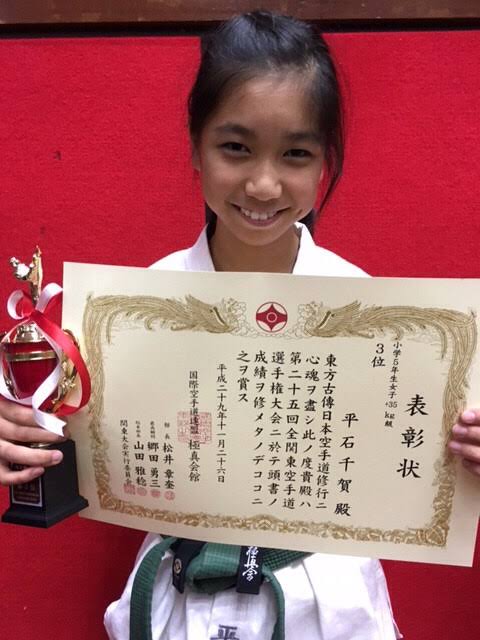 表彰状
小学5年生女子 +35kg級
3位
平石千賀殿
東方古傳日本空手道修行ニ
心魂ヲ盡シ此ノ度貴殿ハ
第二十五回全関東空手道
選手権大会ニ於テ頭書ノ
成績ヲ修メタノデココニ
之ヲ賞ス
平成二十九年十一月二十六日
国際空手道連盟 極真会館
館長 松井章奎
郷田勇三
山田雅稔
関東大会実行委員会
極真会
平